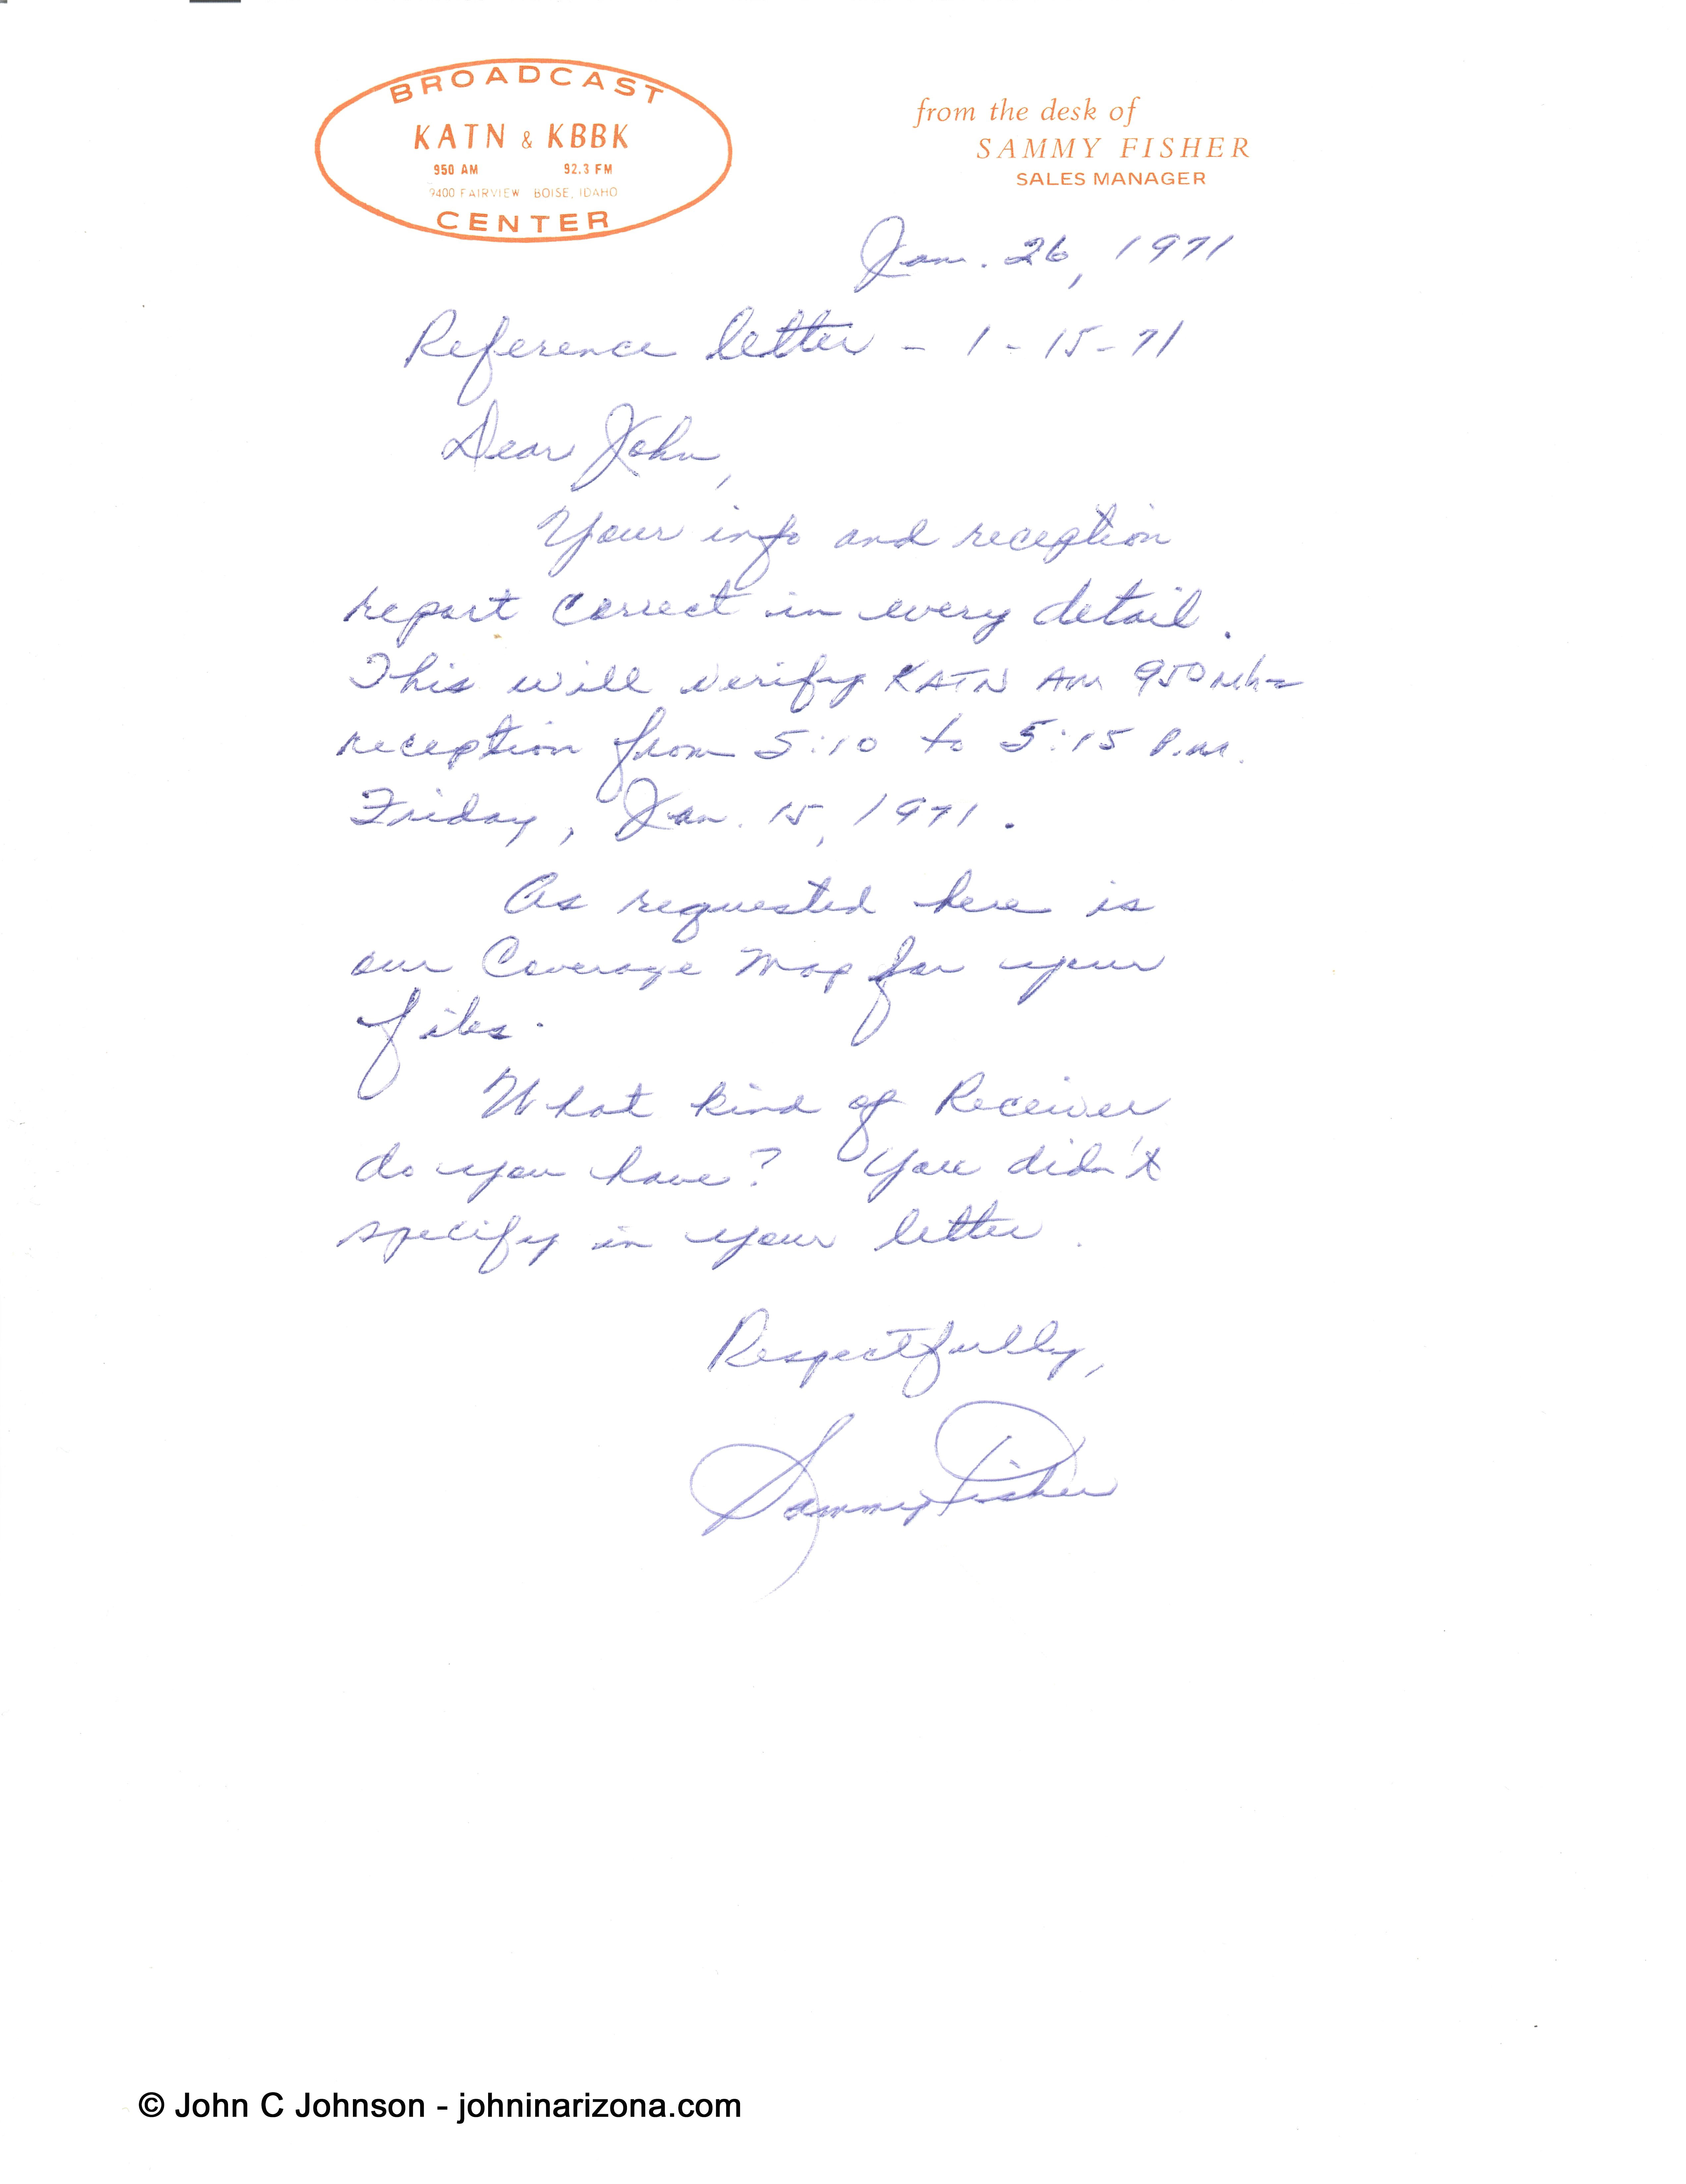 BROADCAST
KATN & KBBK
950 AM 92.3 FM
9400 FAIRVIEW BOISE, IDAHO
CENTER
from the desk of
SAMMY FISHER
SALES MANAGER
Jan. 26, 1971
Reference letter - 1-15-71
Dear John,
Your info and reception
report correct in every detail.
This will verify KATN AM 950
reception from 5:10 to 5:15 P.M.
Friday, Jan. 15, 1971.
As requested here is
our Coverage Map for your
files.
What kind of Receiver
do you have? You didn't
specify in your letter.
Respectfully,
Sammy Fisher
© John C Johnson - johninarizona.com